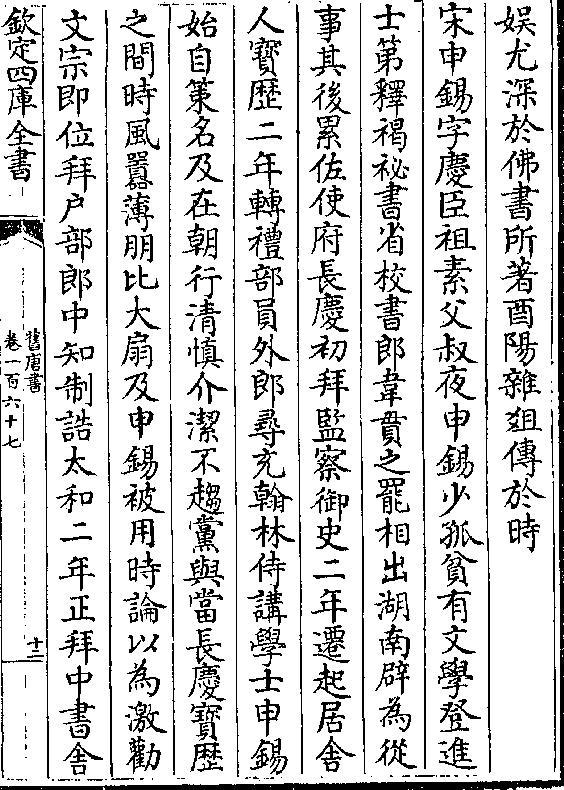 娱尤深於佛書所著酉陽雜俎傳於時
宋申錫字慶臣祖素父叔夜申錫少孤貧有文學登進
士第釋褐祕書省校書郎韋貫之罷相出湖南辟為從
事其後累佐使府長慶初拜監察御史二年遷起居舍
人寶歷二年轉禮部員外郎尋充翰林侍講學士申錫
始自策名及在朝行清慎介潔不趨黨與當長慶寶歷
之間時風囂薄朋比大扇及申錫被用時論以為激勸
文宗即位拜户部郎中知制誥太和二年正拜中書舍
欽定四庫全書
舊唐書
卷一百六十七
十二